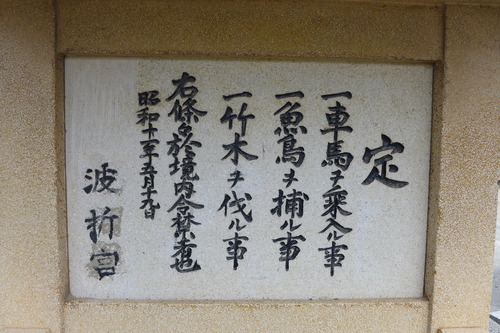 定
一車馬ヲ乗入ル事
一魚鳥ヲ捕ル事
一竹木ヲ伐ル事
右條々於境内令禁者也
昭和十三年五月十九日
波折宮